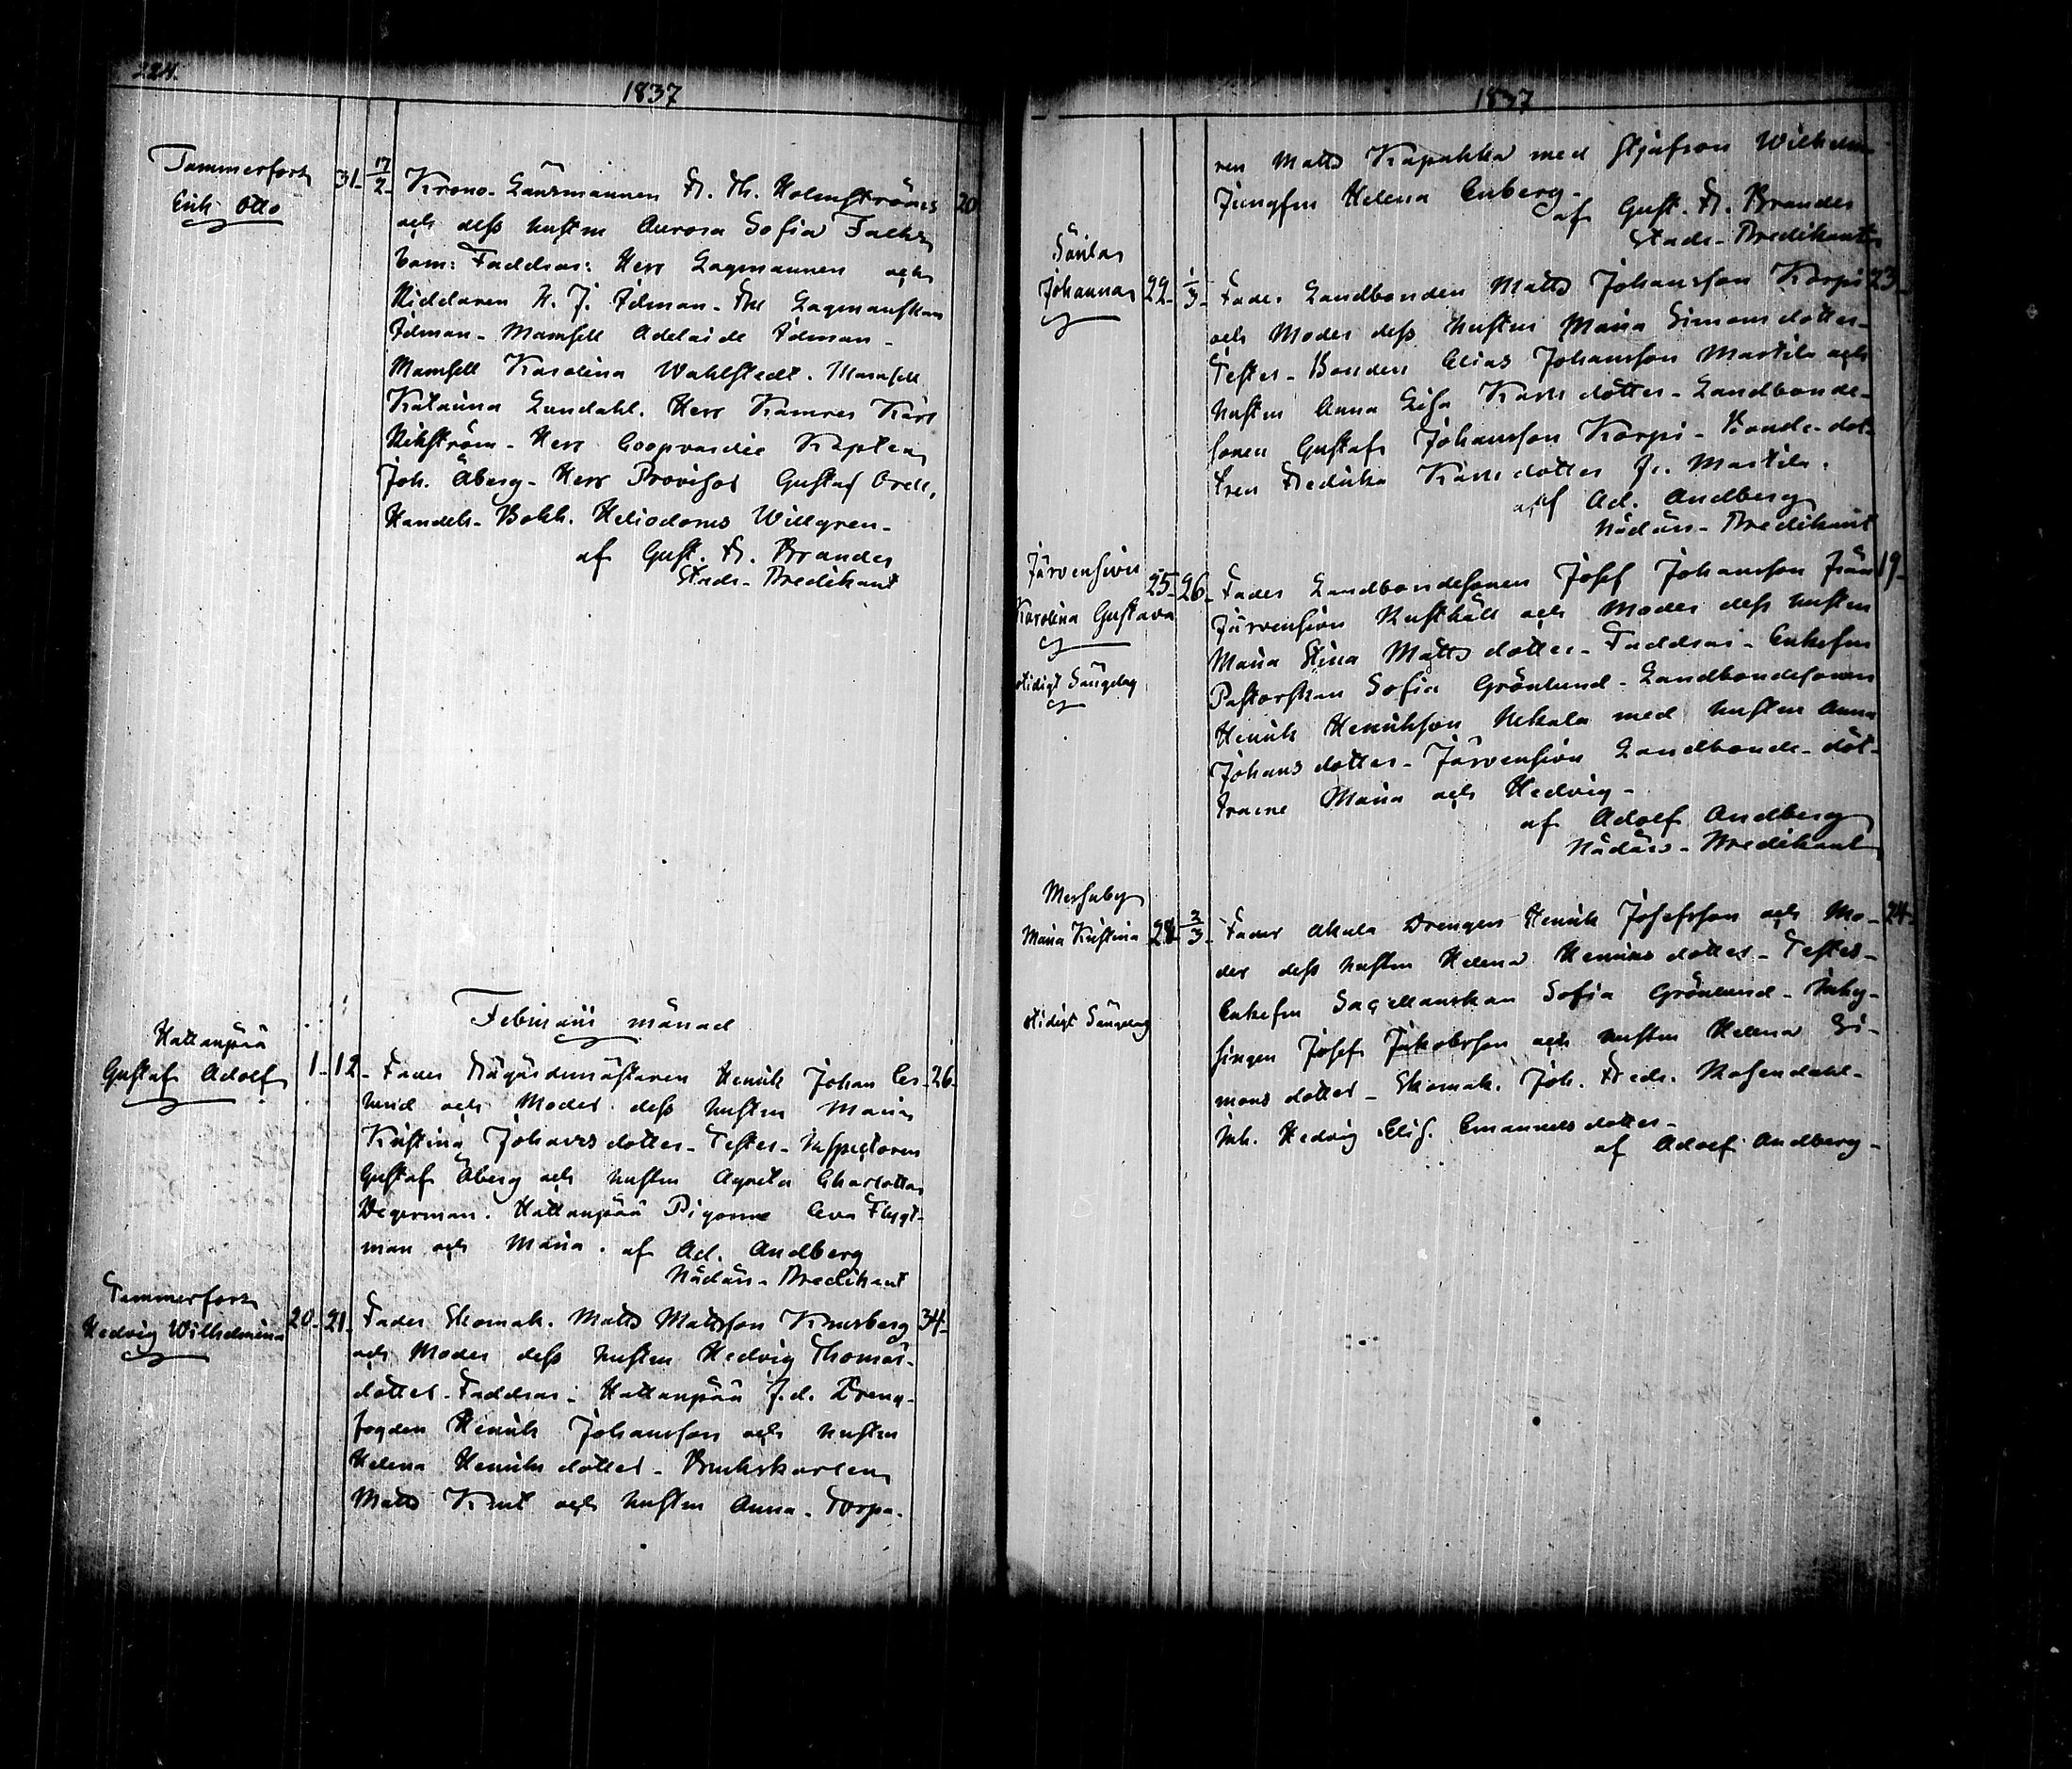 224.
1837
Tammerfors
Erik Otto
31-
17/2-
Krono-Länsmannen Fr. Th. Holmströms
20
och dess hustru Aurora Sofia Falks
barn: Faddrar: Herr Lagmannen och
Riddaren H. J. Idman - Fru Lagmanskan
Idman - Mamsell Adelaide Idman -
Mamsell Karolina Wahlstedt. Mamsell
Katarina Lundahl. Herr Kamrer Karl
Wikström - Herr Coopvardie Kapten
Joh. Åberg - Herr Provisor Gustaf Orell,
Handels-Bokh. Heliodorus Willgren-
af Gust. Fr. Brander
Stads-Predikant
Februarii månad
Hattanpää
Gustaf Adolf
1-
12-
Fader Trägårdsmästaren Henrik Johan Ces-
26-
och Moder dess hustru Maria
Kristina Johansdotter - Testes - Inspectoren
Gustaf Åberg och hustru Agneta Charlotta
Degerman. Hattanpää Pigorne Eva Flygt-
man och Maria. af Ad. Andberg
Nådårs-Predikant
Tammerfors
Hedvig Wilhelmina
20-
21-
Fader Skomak. Matts Mattsson Knusberg
34-
och Moder dess hustru Hedvig Thomas-
dotter - Faddrar - Hattanpää f.d. Dreng-
fogden Henrik Johansson och hustru
Helena Henriksdotter - Brukskarlen
Matts Knut och hustru Anna - Torpa-
1837
ren Matts Kapakka med styfson Wilhelm
Jungfru Helena Enberg-
af Gust. Fr. Brander
Stads-Predikant
Santa
Johanna
22-
1/3-
Fader Landbonden Matts Johansson Korpi
23-
och Moder dess hustru Maria Simonsdotter-
Testes - Bonden Elias Johansson Marttila och
hustru Anna Lisa Karlsdotter - Landbonde-
sonen Gustaf Johansson Korpi - Bonde-dot-
tren Fredrika Karlsdotter fr. Marttila.
af Ad. Andberg
Nådårs-Predikant
Järvensivu
Karolina Gustava
25-
26-
Fader Landbondesonen Josef Johansson från
19-
Järvensivu Rusthåll och Moder dess hustru
Maria Stina Mattsdotter - Faddrar - Enkefru
Pastorskan Sofia Grönlund - Landbondesonen
Henrik Henriksson Nekala med hustru Anna
Johansdotter - Järvensivu Landbonde-döt-
trarne Maria och Hedvig-
af Adolf Andberg
Nådårs-Predikant
Messuby
Maria Kristina
28
2/3-
Fader Ahala Drengen Henrik Josefsson och Mo-
24-
der dess hustru Helena Henriksdotter - Testes-
Enkefru Sacellanskan Sofia Grönlund - Inhy-
singen Josef Jakobsson och hustru Helena Si-
monsdotter - Skomak. Joh. Fredr. Rosendahl-
Inh. Hedvig Elis. Emanuelsdotter-
af Adolf Andberg-